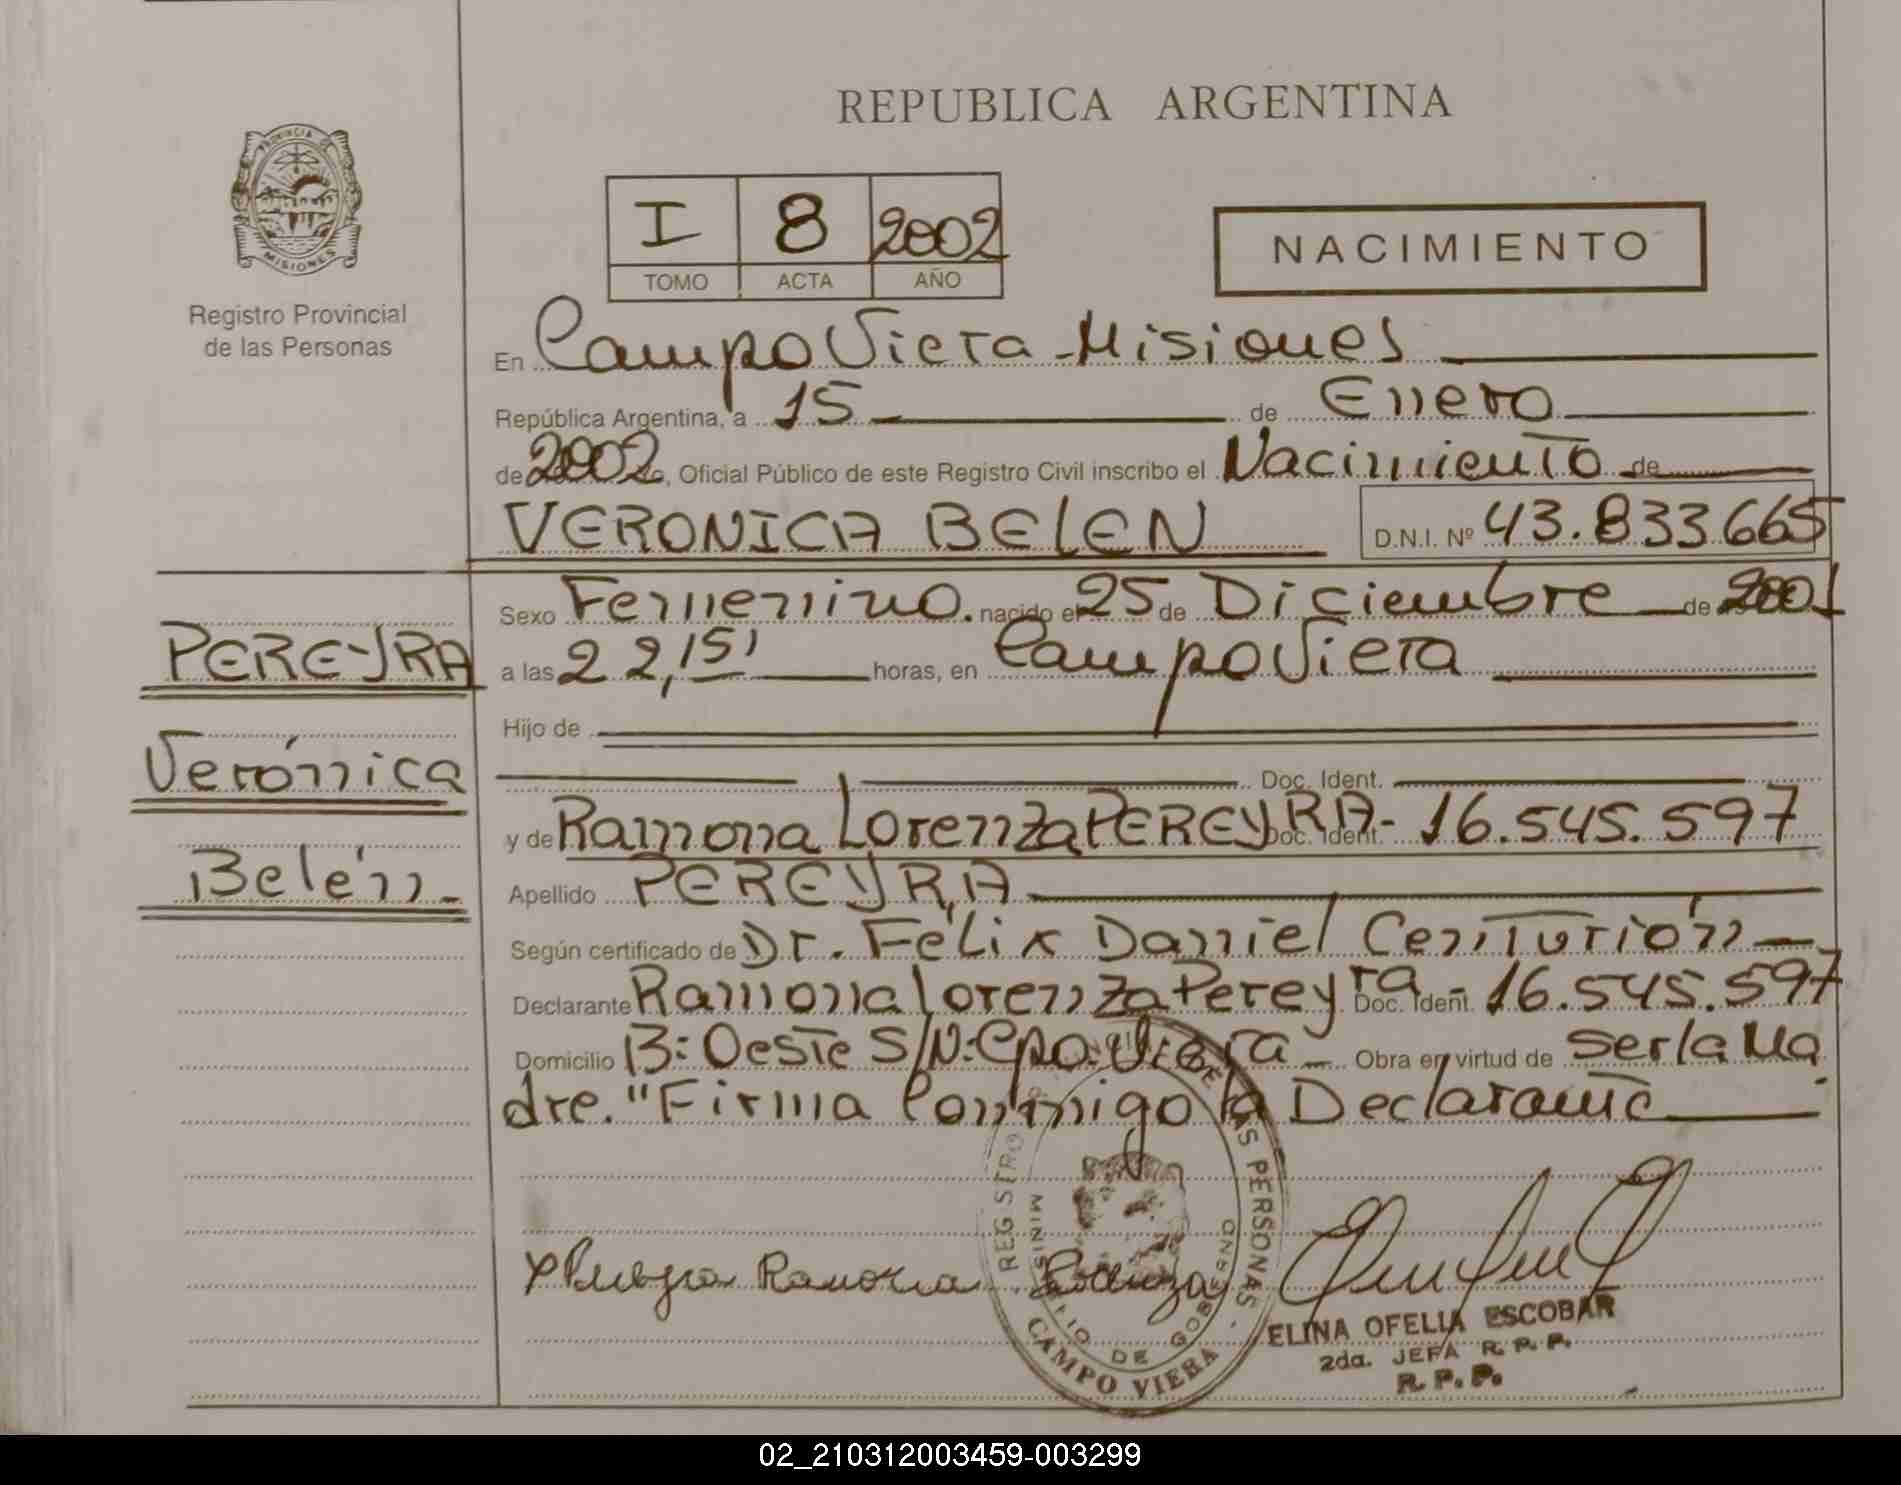 REPUBLICA ARGENTINA
PROVINCIA DE
MISIONES
Registro Provincial
de las Personas
I 8 2002
TOMO ACTA AÑO
NACIMIENTO
En Campo Viera - Misiones
República Argentina, a 15 de Enero
de 2002, Oficial Público de este Registro Civil inscribo el Nacimiento de
VERONICA BELEN D.N.I. Nº 43.833.665
Sexo Femenino. nacido el 25 de Diciembre de 2001
a las 22,15' horas, en Campo Viera
Hijo de
Doc. Ident.
y de Ramona Lorenza PEREYRA - Doc. Ident. 16.545.597
Apellido PEREYRA
Según certificado de Dr. Félix Daniel Centurión
Declarante Ramona Lorenza Pereyra - Doc. Ident. 16.545.597
Domicilio B: Oeste S/N: Cpo. Viera Obra en virtud de Ser la Ma
dre. "Firma Conmigo la Declarante
PEREYRA
Verónica
Belén
Ramona Lorenza
REGISTRO DE LAS PERSONAS
MINISTERIO DE GOBIERNO
CAMPO VIERA
ELINA OFELIA ESCOBAR
2da. JEFA R. P. P.
R. P. P.
02_210312003459-003299